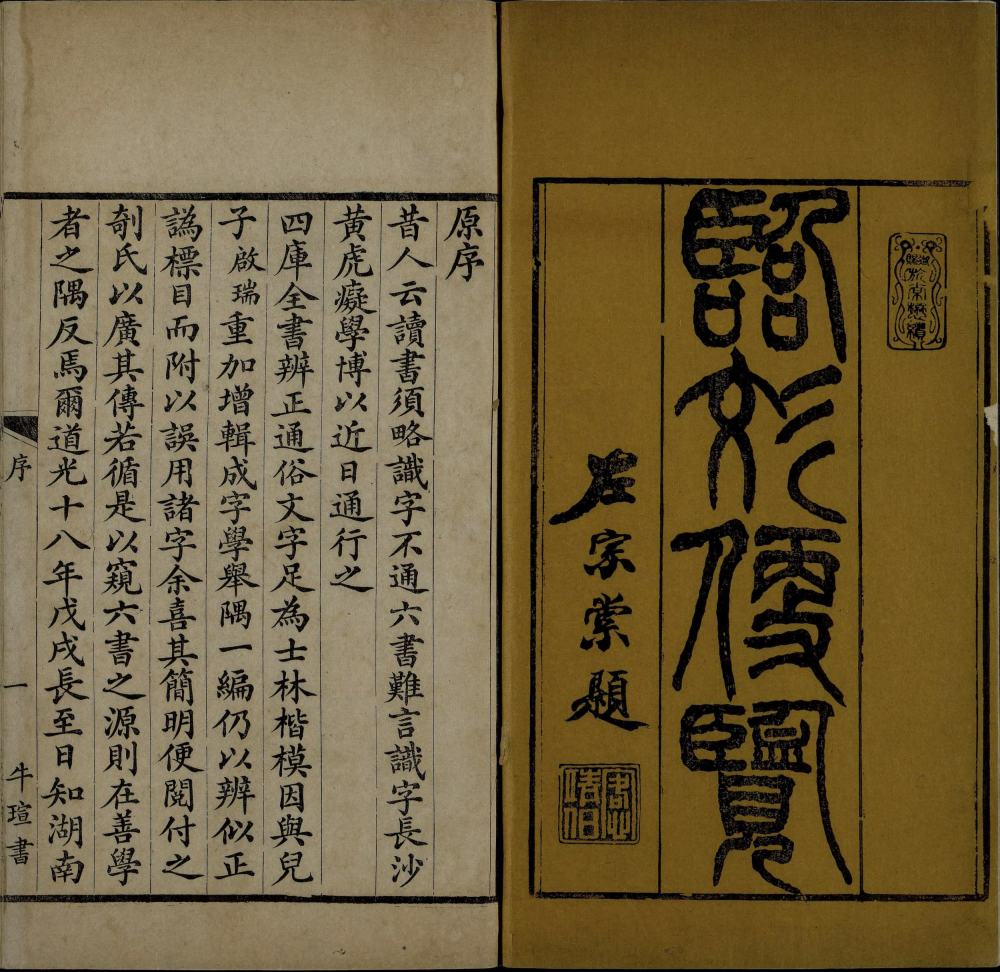 臨彣便覽
左宗棠題
原序
昔人云讀書須略識字不通六書難言識字長沙
黃虎癡學博以近日通行之
四庫全書辨正通俗文字足為士林楷模因與兒
子啟瑞重加增輯成字學舉隅一編仍以辨似正
譌標目而附以誤用諸字余喜其簡明便閱付之
剞氏以廣其傳若循是以窺六書之源則在善學
者之隅反焉爾道光十八年戊戌長至日知湖南
序
一
牛瑄書